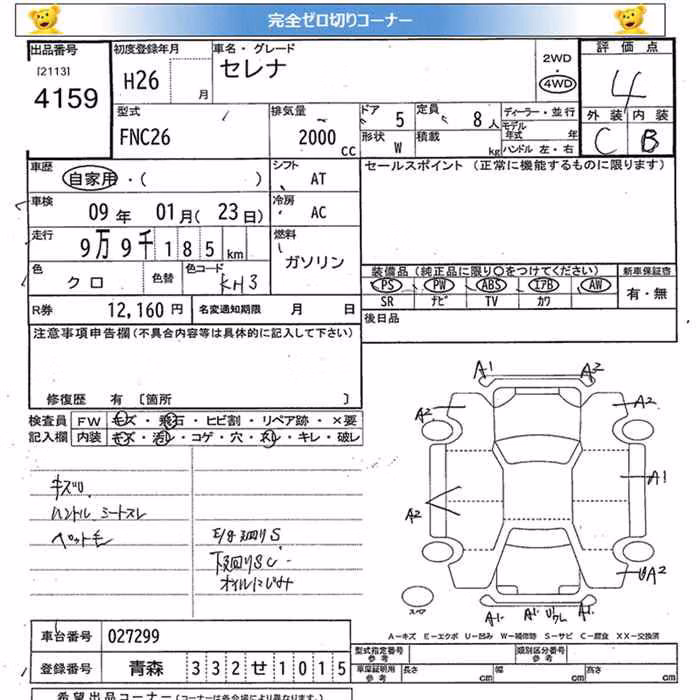 完全ゼロ切りコーナー
出品番号 初度登録年月 車名・グレード 2WD・4WD 評価点
[2113]
4159 H26 月 セレナ 4
型式 排気量 ドア 5 定員 8人 ディーラー・並行 外装 内装
FNC26 2000cc 形状 W 積載 kg モデル年式 年 ハンドル 左・右 C B
車歴 自家用・( ) シフト AT セールスポイント (正常に機能するものに限ります)
車検 09年 01月(23日) 冷房 AC
走行 9万9千185km 燃料 ガソリン
色 クロ 色替 色コード KH3
装備品(純正品に限り○をつけてください) 新車保証書
PS PW ABS エアB AW 有・無
SR ナビ TV カワ
R券 12,160円 名変通知期限 月 日 後日品
注意事項申告欄(不具合内容等は具体的に記入して下さい)
修復歴 有 〔箇所 〕
検査員 FW キズ・飛石・ヒビ割・リペア跡・×要
記入欄 内装 キズ・汚レ・コゲ・穴・スレ・キレ・破レ
A1 A2
A2 A2
A1
A2
UA2
A1 A1 A1
スペア
キズU
ハンドル シートスレ
ペットモ E/g下廻りS
下廻りSC
オイルにじみ
A-キズ E-エクボ U-凹み W-補修跡 S-サビ C-腐食 XX-交換済
車台番号 027299
登録番号 青森 332せ1015
型式指定番号 参考 類別区分番号 参考
車庫証明用 参考 長さ cm 幅 cm 高さ cm
希望出品コーナー(コーナーは各会場により異なります。)